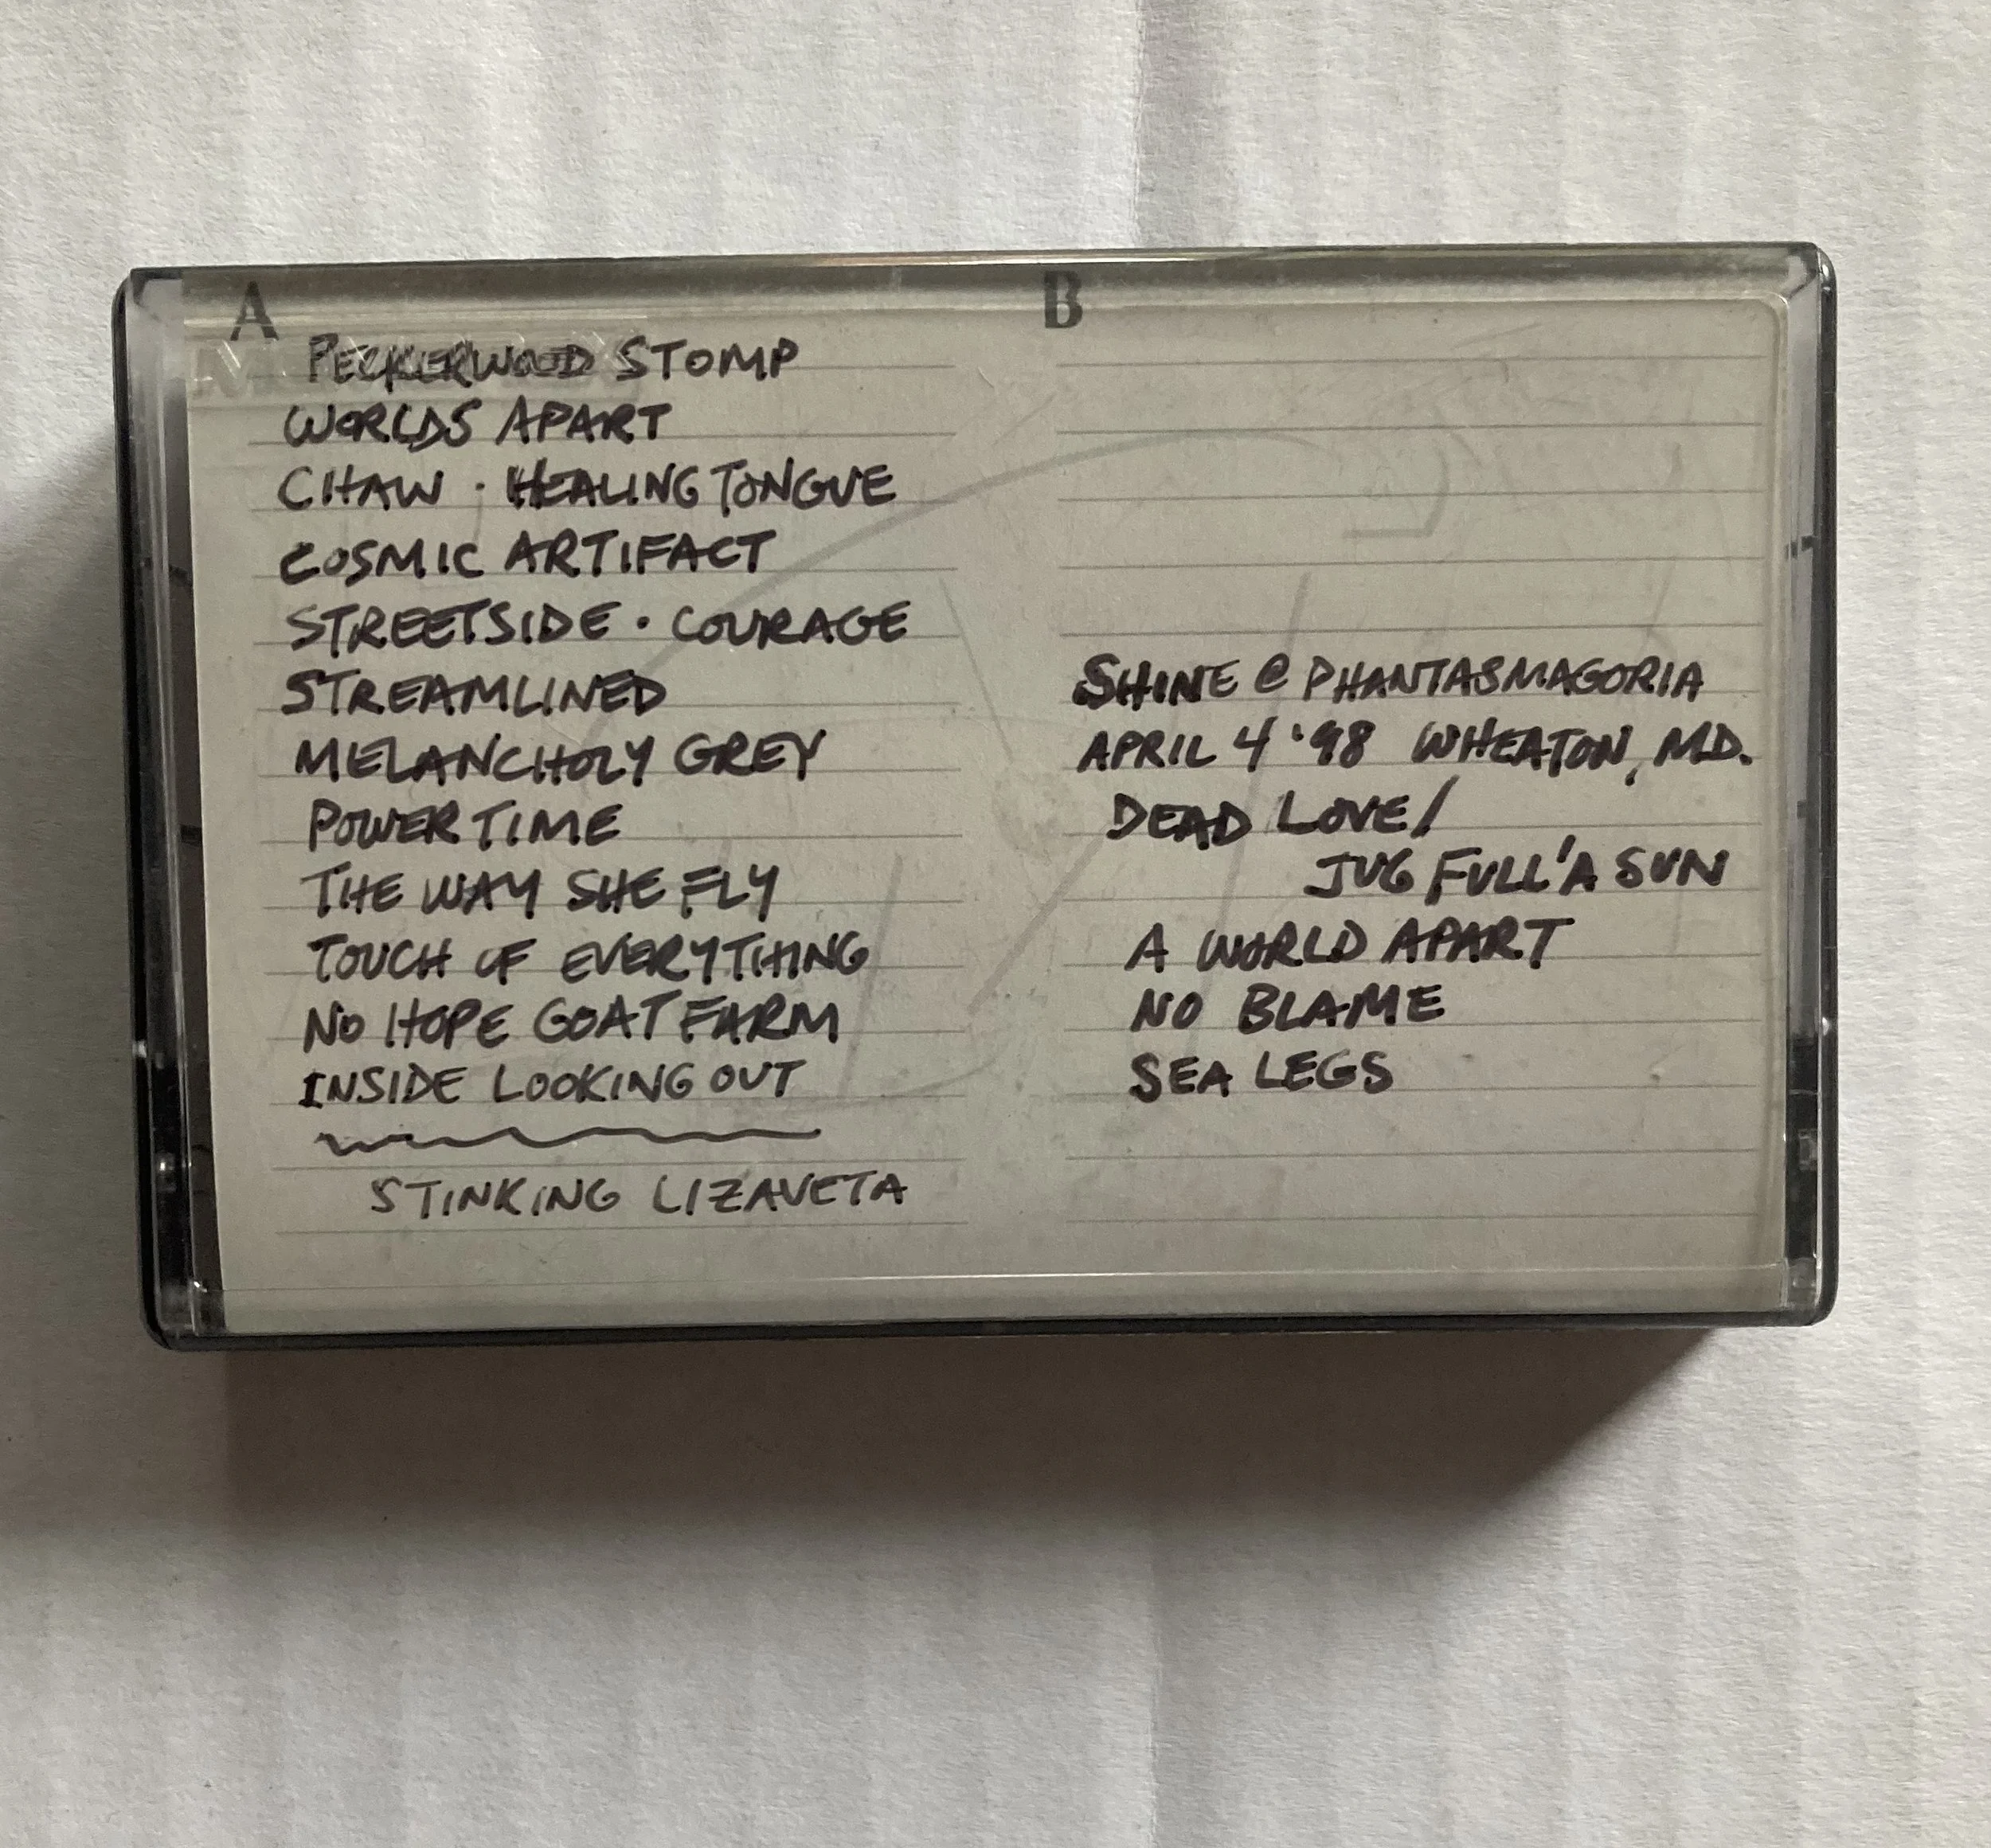 A
PECKERWOOD STOMP
WORLDS APART
CHAW · HEALING TONGUE
COSMIC ARTIFACT
STREETSIDE · COURAGE
STREAMLINED
MELANCHOLY GREY
POWER TIME
THE WAY SHE FLY
TOUCH OF EVERYTHING
NO HOPE GOAT FARM
INSIDE LOOKING OUT
STINKING LIZAVETA
B
SHINE @ PHANTASMAGORIA
APRIL 4 '98 WHEATON, MD.
DEAD LOVE/
JUG FULL'A SUN
A WORLD APART
NO BLAME
SEA LEGS